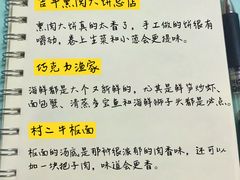 吉平熏肉大饼总店
熏肉大饼真的太香了，手工做的饼很有
嚼劲，卷上生菜和小葱会更提味。
巧克力渔家
海鲜都是大个又新鲜的，尤其是鲜笋炒虾、
面包蟹、清蒸多宝鱼和海鲜狮子头都是必点。
村二牛板面
板面的汤底是那种很浓郁的肉香味，还可以
加一块把子肉，味道会更香。